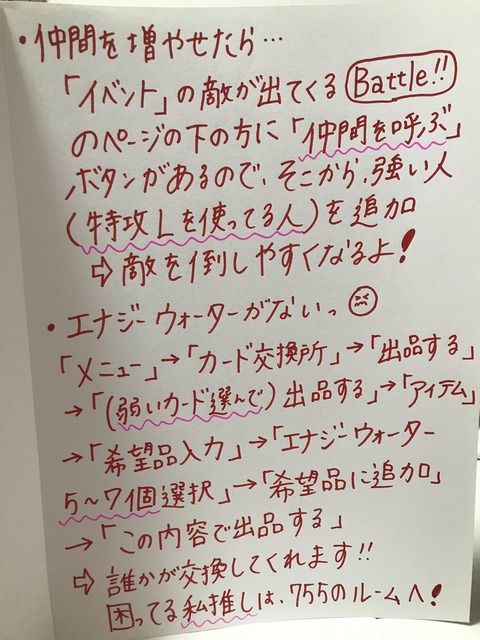 ・仲間を増やせたら…
「イベント」の敵が出てくる Battle!!
のページの下の方に「仲間を呼ぶ」
ボタンがあるので、そこから、強い人
(特攻Lを使ってる人)を追加
⇨敵を倒しやすくなるよ!
・エナジーウォーターがないっ
「メニュー」→「カード交換所」→「出品する」
→「(弱いカード選んで)出品する」→「アイテム」
→「希望品入力」→「エナジーウォーター
5〜7個選択」→「希望品に追加」
→「この内容で出品する」
⇨誰かが交換してくれます!!
困ってる私推しは、755のルームへ!